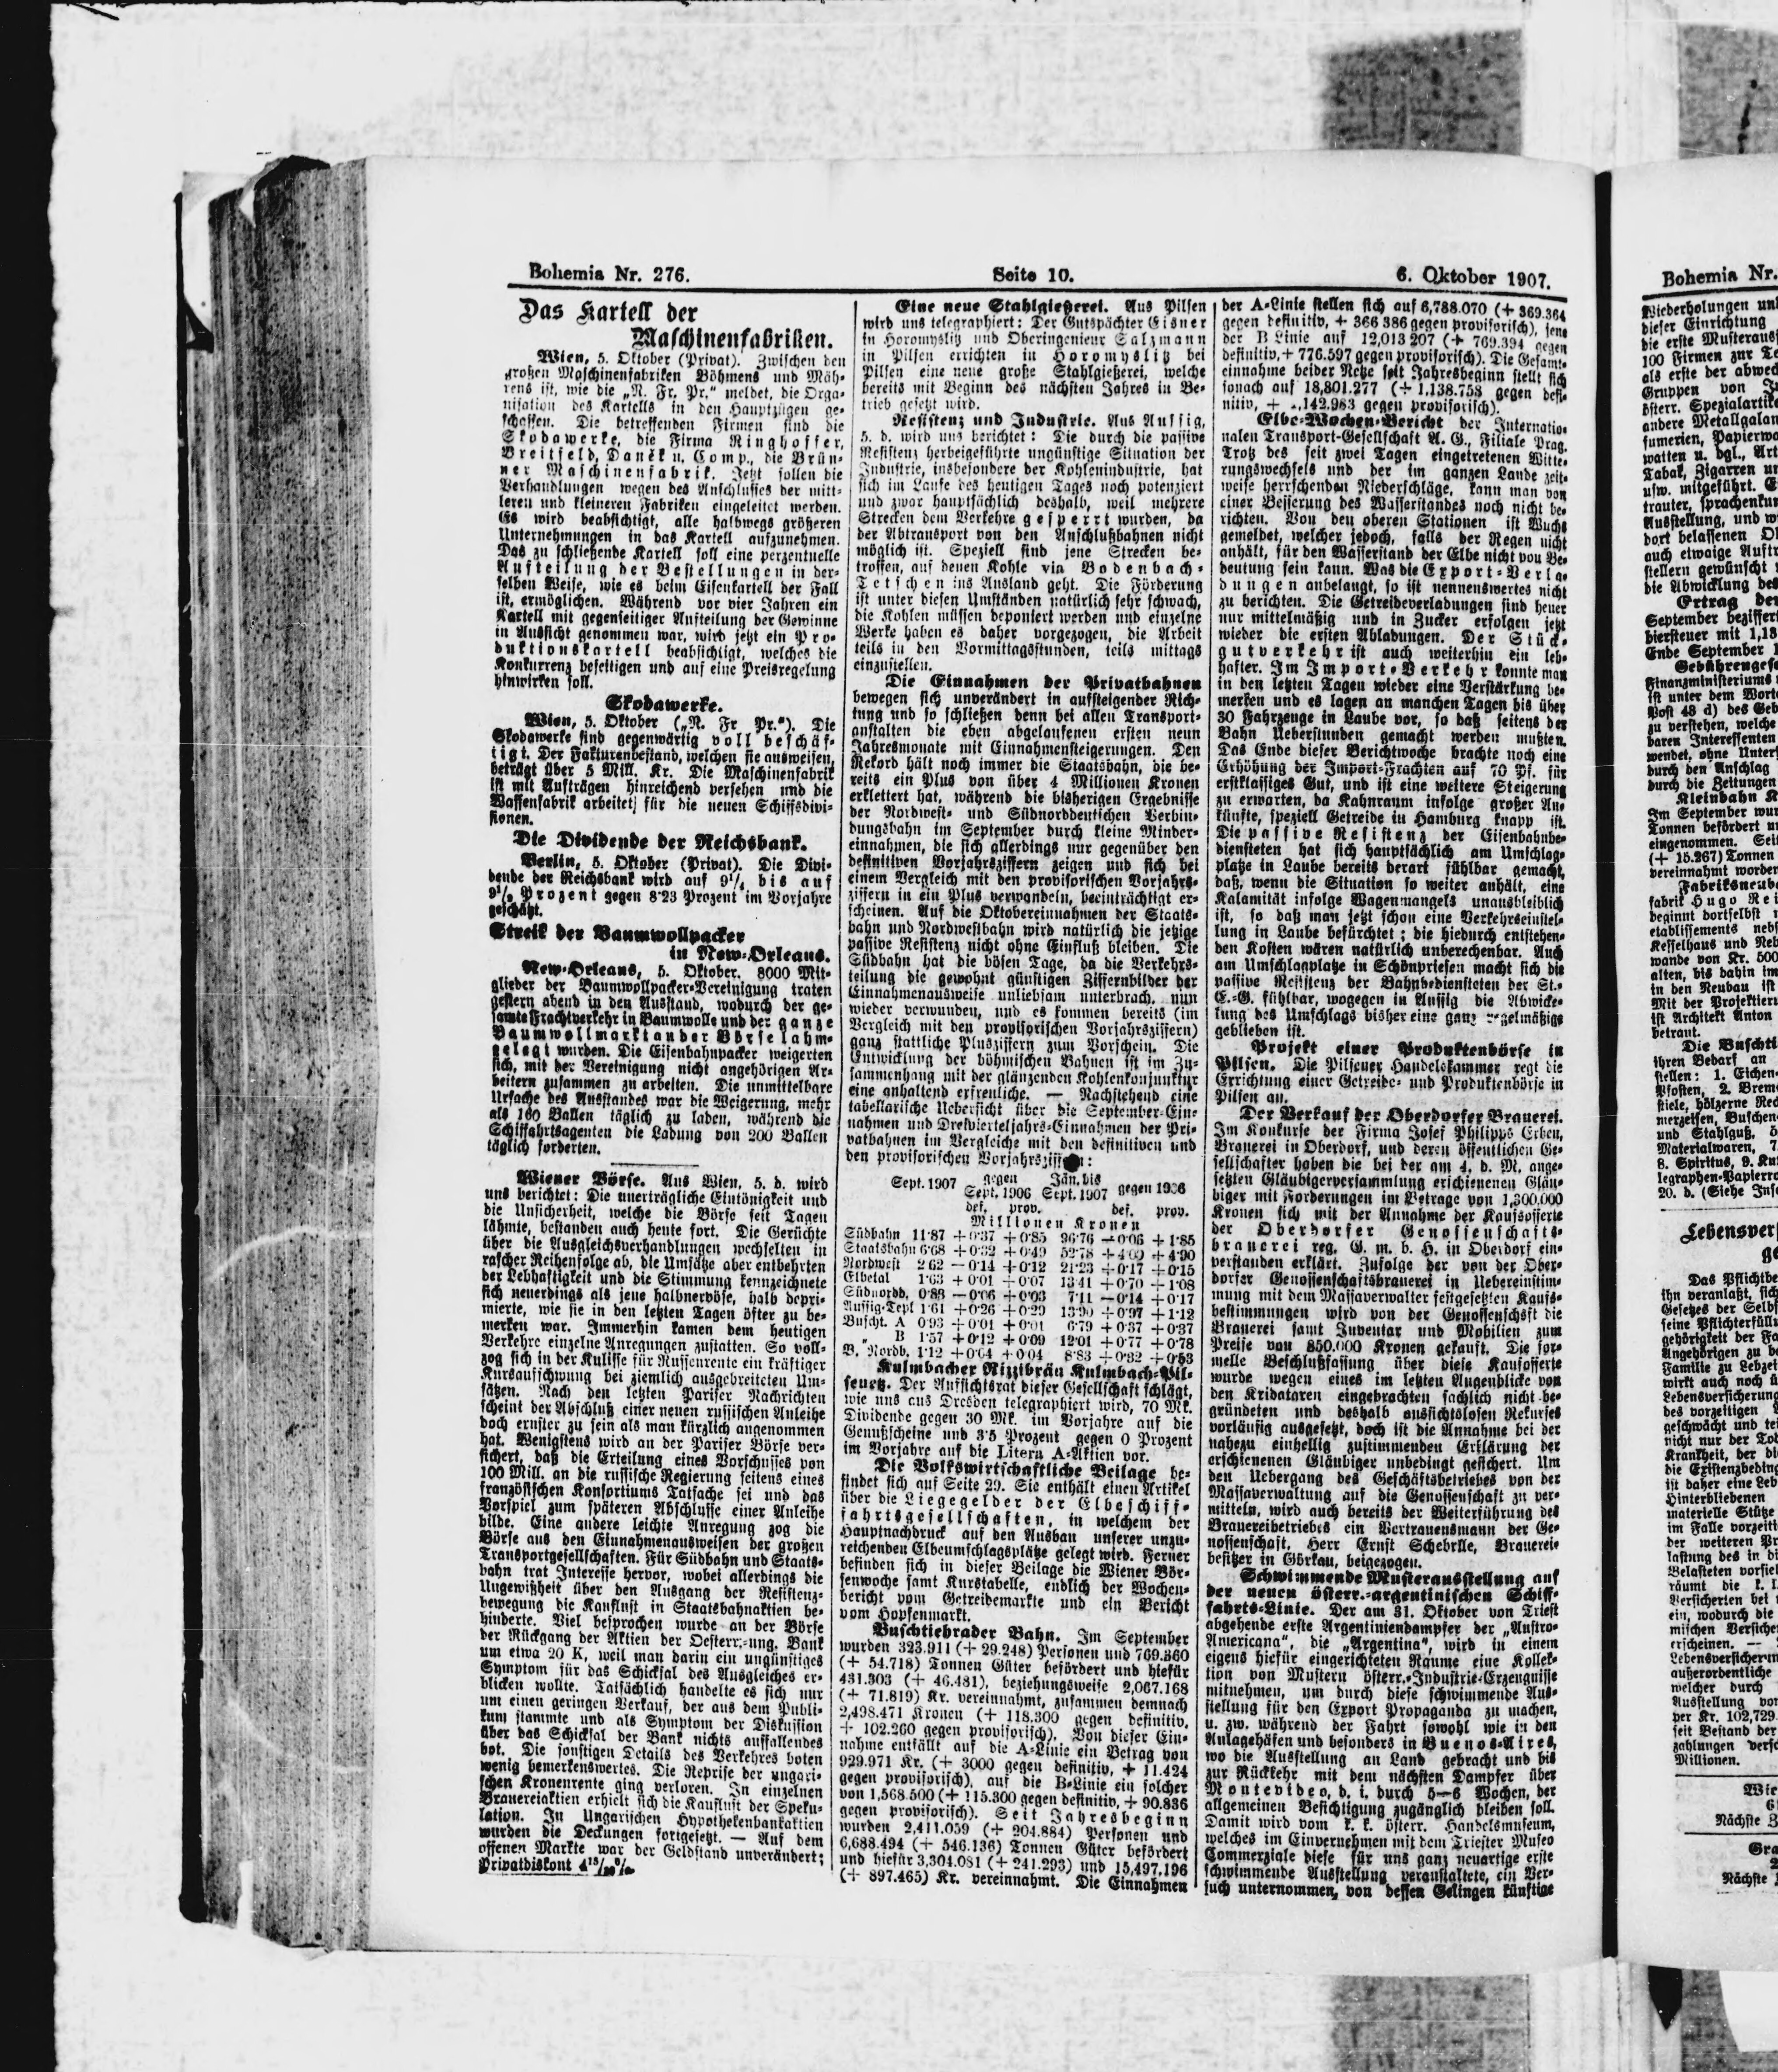 Bohemia Nr. 276.
Seite 10.
6. Oktober 1907.
Das Kartell der
Maschinenfabriken.
Wien, 5. Oktober (Privat). Zwischen den
großen Maschinenfabriken Böhmens und Mäh-
rens ist, wie die „N. Fr. Pr.“ meldet, die Orga-
nisation des Kartells in den Hauptzügen ge-
schaffen. Die betreffenden Firmen sind die
Skodawerke, die Firma Ringhoffer,
Breitfeld, Daněk u. Comp., die Brün-
ner Maschinenfabrik. Jetzt sollen die
Verhandlungen wegen des Anschlusses der mitt-
leren und kleineren Fabriken eingeleitet werden.
Es wird beabsichtigt, alle halbwegs größeren
Unternehmungen in das Kartell aufzunehmen.
Das zu schließende Kartell soll eine perzentuelle
Aufteilung der Bestellungen in der-
selben Weise, wie es beim Eisenkartell der Fall
ist, ermöglichen. Während vor vier Jahren ein
Kartell mit gegenseitiger Aufteilung der Gewinne
in Aussicht genommen war, wird jetzt ein Pro-
duktionskartell beabsichtigt, welches die
Konkurrenz beseitigen und auf eine Preisregelung
hinwirken soll.
Skodawerke.
Wien, 5. Oktober („N. Fr Pr.“). Die
Skodawerke sind gegenwärtig voll beschäf-
tigt. Der Fakturenbestand, welchen sie ausweisen,
beträgt über 5 Mill. Kr. Die Maschinenfabrik
ist mit Aufträgen hinreichend versehen und die
Waffenfabrik arbeitet für die neuen Schiffsdivi-
sionen.
Die Dividende der Reichsbank.
Berlin, 5. Oktober (Privat). Die Divi-
dende der Reichsbank wird auf 9¼ bis auf
9½ Prozent gegen 8·23 Prozent im Vorjahre
geschätzt.
Streik der Baumwollpacker
in New-Orleans.
New-Orleans, 5. Oktober. 8000 Mit-
glieder der Baumwollpacker-Vereinigung traten
gestern abend in den Ausstand, wodurch der ge-
samte Frachtverkehr in Baumwolle und der ganze
Baumwollmarkt an der Börse lahm-
gelegt wurden. Die Eisenbahnpacker weigerten
sich, mit der Vereinigung nicht angehörigen Ar-
beitern zusammen zu arbeiten. Die unmittelbare
Ursache des Ausstandes war die Weigerung, mehr
als 160 Ballen täglich zu laden, während die
Schiffahrtsagenten die Ladung von 200 Ballen
täglich forderten.
Wiener Börse. Aus Wien, 5. d. wird
uns berichtet: Die unerträgliche Eintönigkeit und
die Unsicherheit, welche die Börse seit Tagen
lähmte, bestanden auch heute fort. Die Gerüchte
über die Ausgleichsverhandlungen wechselten in
rascher Reihenfolge ab, die Umsätze aber entbehrten
der Lebhaftigkeit und die Stimmung kennzeichnete
sich neuerdings als jene halbnervöse, halb depri-
mierte, wie sie in den letzten Tagen öfter zu be-
merken war. Immerhin kamen dem heutigen
Verkehre einzelne Anregungen zustatten. So voll-
zog sich in der Kulisse für Russenrente ein kräftiger
Kursaufschwung bei ziemlich ausgebreiteten Um-
sätzen. Nach den letzten Pariser Nachrichten
scheint der Abschluß einer neuen russischen Anleihe
doch ernster zu sein als man kürzlich angenommen
hat. Wenigstens wird an der Pariser Börse ver-
sichert, daß die Erteilung eines Vorschusses von
100 Mill. an die russische Regierung seitens eines
französischen Konsortiums Tatsache sei und das
Vorspiel zum späteren Abschlusse einer Anleihe
bilde. Eine andere leichte Anregung zog die
Börse aus den Einnahmenausweisen der großen
Transportgesellschaften. Für Südbahn und Staats-
bahn trat Interesse hervor, wobei allerdings die
Ungewißheit über den Ausgang der Resistenz-
bewegung die Kauflust in Staatsbahnaktien be-
hinderte. Viel besprochen wurde an der Börse
der Rückgang der Aktien der Oesterr.-ung. Bank
um etwa 20 K, weil man darin ein ungünstiges
Symptom für das Schicksal des Ausgleiches er-
blicken wollte. Tatsächlich handelte es sich nur
um einen geringen Verkauf, der aus dem Publi-
kum stammte und als Symptom der Diskussion
über das Schicksal der Bank nichts auffallendes
bot. Die sonstigen Details des Verkehres boten
wenig bemerkenswertes. Die Reprise der ungari-
schen Kronenrente ging verloren. In einzelnen
Brauereiaktien erhielt sich die Kauflust der Speku-
lation. In Ungarischen Hypothekenbankaktien
wurden die Deckungen fortgesetzt. — Auf dem
offenen Markte war der Geldstand unverändert;
Privatdiskont
Eine neue Stahlgießerei. Aus Pilsen
wird uns telegraphiert: Der Gutspächter Eisner
in Horomyslitz und Oberingenieur Salzmann
in Pilsen errichten in Horomyslitz bei
Pilsen eine neue große Stahlgießerei, welche
bereits mit Beginn des nächsten Jahres in Be-
trieb gesetzt wird.
Resistenz und Industrie. Aus Aussig,
5. d. wird uns berichtet: Die durch die passive
Resistenz herbeigeführte ungünstige Situation der
Industrie, insbesondere der Kohlenindustrie, hat
sich im Laufe des heutigen Tages noch potenziert
und zwar hauptsächlich deshalb, weil mehrere
Strecken dem Verkehre gesperrt wurden, da
der Abtransport von den Anschlußbahnen nicht
möglich ist. Speziell sind jene Strecken be-
troffen, auf denen Kohle via Bodenbach-
Tetschen ins Ausland geht. Die Förderung
ist unter diesen Umständen natürlich sehr schwach,
die Kohlen müssen deponiert werden und einzelne
Werke haben es daher vorgezogen, die Arbeit
teils in den Vormittagsstunden, teils mittags
einzustellen.
Die Einnahmen der Privatbahnen
bewegen sich unverändert in aufsteigender Rich-
tung und so schließen denn bei allen Transport-
anstalten die eben abgelaufenen ersten neun
Jahresmonate mit Einnahmensteigerungen. Den
Rekord hält noch immer die Staatsbahn, die be-
reits ein Plus von über 4 Millionen Kronen
erklettert hat, während die bisherigen Ergebnisse
der Nordwest- und Südnorddeutschen Verbin-
dungsbahn im September durch kleine Minder-
einnahmen, die sich allerdings nur gegenüber den
definitiven Vorjahrsziffern zeigen und sich bei
einem Vergleich mit den provisorischen Vorjahrs-
ziffern in ein Plus verwandeln, beeinträchtigt er-
scheinen. Auf die Oktobereinnahmen der Staats-
bahn und Nordwestbahn wird natürlich die jetzige
passive Resistenz nicht ohne Einfluß bleiben. Die
Südbahn hat die bösen Tage, da die Verkehrs-
teilung die gewohnt günstigen Ziffernbilder der
Einnahmenausweise unliebsam unterbrach, nun
wieder verwunden, und es kommen bereits (im
Vergleich mit den provisorischen Vorjahrsziffern)
ganz stattliche Plusziffern zum Vorschein. Die
Entwicklung der böhmischen Bahnen ist im Zu-
sammenhang mit der glänzenden Kohlenkonjunktur
eine anhaltend erfreuliche. — Nachstehend eine
tabellarische Uebersicht über die September-Ein-
nahmen und Dreivierteljahrs-Einnahmen der Pri-
vatbahnen im Vergleiche mit den definitiven und
den provisorischen Vorjahrsziffern:
Sept. 1907 gegen Sept. 1906 Jän. bis Sept. 1907 gegen 1906
def. prov. def. prov.
Millionen Kronen
Südbahn 11·87 +0·37 +0·85 96·76 —0·06 +1·85
Staatsbahn 6·68 +0·32 +0·49 52·78 +4·00 +4·90
Nordwest 2·62 —0·14 +0·12 21·23 +0·17 +0·15
Elbetal 1·63 +0·01 +0·07 13·41 +0·70 +1·08
Südnordd. 0·88 —0·06 +0·03 7·11 —0·14 +0·17
Aussig-Tepl 1·61 +0·26 +0·29 13·90 +0·97 +1·12
Buscht. A 0·93 +0·01 +0·01 6·79 +0·37 +0·37
„ B 1·57 +0·12 +0·09 12·01 +0·77 +0·78
B. Nordb. 1·12 +0·04 +0·04 8·83 +0·32 +0·53
Kulmbacher Rizzibräu Kulmbach-Pil-
senetz. Der Aufsichtsrat dieser Gesellschaft schlägt,
wie uns aus Dresden telegraphiert wird, 70 Mk.
Dividende gegen 30 Mk. im Vorjahre auf die
Genußscheine und 3·5 Prozent gegen 0 Prozent
im Vorjahre auf die Litera A-Aktien vor.
Die Volkswirtschaftliche Beilage be-
findet sich auf Seite 29. Sie enthält einen Artikel
über die Liegegelder der Elbeschiff-
fahrtsgesellschaften, in welchem der
Hauptnachdruck auf den Ausbau unserer unzu-
reichenden Elbeumschlagsplätze gelegt wird. Ferner
befinden sich in dieser Beilage die Wiener Bör-
senwoche samt Kurstabelle, endlich der Wochen-
bericht vom Getreidemarkte und ein Bericht
vom Hopfenmarkt.
Buschtiehrader Bahn. Im September
wurden 323.911 (+ 29.248) Personen und 769.360
(+ 54.718) Tonnen Güter befördert und hiefür
431.303 (+ 46.481), beziehungsweise 2,067.168
(+ 71.819) Kr. vereinnahmt, zusammen demnach
2,498.471 Kronen (+ 118.300 gegen definitiv,
+ 102.260 gegen provisorisch). Von dieser Ein-
nahme entfällt auf die A-Linie ein Betrag von
929.971 Kr. (+ 3000 gegen definitiv, + 11.424
gegen provisorisch), auf die B-Linie ein solcher
von 1,568.500 (+ 115.300 gegen definitiv, + 90.836
gegen provisorisch). Seit Jahresbeginn
wurden 2,411.059 (+ 204.884) Personen und
6,688.494 (+ 546.136) Tonnen Güter befördert
und hiefür 3,304.081 (+ 241.293) und 15,497.196
(+ 897.465) Kr. vereinnahmt. Die Einnahmen
der A-Linie stellen sich auf 6,788.070 (+ 369.364
gegen definitiv, + 366 386 gegen provisorisch), jene
der B Linie auf 12,013 207 (+ 769.394 gegen
definitiv, + 776.597 gegen provisorisch). Die Gesamt-
einnahme beider Netze seit Jahresbeginn stellt sich
sonach auf 18,801.277 (+ 1,138.758 gegen defi-
nitiv, + 1,142.983 gegen provisorisch).
Elbe-Wochen-Bericht der Internatio-
nalen Transport-Gesellschaft A. G., Filiale Prag.
Trotz des seit zwei Tagen eingetretenen Witte-
rungswechsels und der im ganzen Lande zeit-
weise herrschenden Niederschläge, kann man von
einer Besserung des Wasserstandes noch nicht be-
richten. Von den oberen Stationen ist Wuchs
gemeldet, welcher jedoch, falls der Regen nicht
anhält, für den Wasserstand der Elbe nicht von Be-
deutung sein kann. Was die Export-Verla-
dungen anbelangt, so ist nennenswertes nicht
zu berichten. Die Getreideverladungen sind heuer
nur mittelmäßig und in Zucker erfolgen jetzt
wieder die ersten Abladungen. Der Stück-
gutverkehr ist auch weiterhin ein leb-
hafter. Im Import-Verkehr konnte man
in den letzten Tagen wieder eine Verstärkung be-
merken und es lagen an manchen Tagen bis über
30 Fahrzeuge in Laube vor, so daß seitens der
Bahn Ueberstunden gemacht werden mußten.
Das Ende dieser Berichtwoche brachte noch eine
Erhöhung der Import-Frachten auf 70 Pf. für
erstklassiges Gut, und ist eine weitere Steigerung
zu erwarten, da Kahnraum infolge großer An-
künfte, speziell Getreide in Hamburg knapp ist.
Die passive Resistenz der Eisenbahnbe-
diensteten hat sich hauptsächlich am Umschlag-
platze in Laube bereits derart fühlbar gemacht,
daß, wenn die Situation so weiter anhält, eine
Kalamität infolge Wagenmangels unausbleiblich
ist, so daß man jetzt schon eine Verkehrseinstel-
lung in Laube befürchtet; die hiedurch entstehen-
den Kosten wären natürlich unberechenbar. Auch
am Umschlagplatze in Schönpriesen macht sich die
passive Resistenz der Bahnbediensteten der St.-
E.-G. fühlbar, wogegen in Aussig die Abwicke-
lung des Umschlags bisher eine ganz regelmäßige
geblieben ist.
Projekt einer Produktenbörse in
Pilsen. Die Pilsener Handelskammer regt die
Errichtung einer Getreide- und Produktenbörse in
Pilsen an.
Der Verkauf der Oberdorfer Brauerei.
Im Konkurse der Firma Josef Philipps Erben,
Brauerei in Oberdorf, und deren öffentlichen Ge-
sellschafter haben die bei der am 4. d. M. ange-
setzten Gläubigerversammlung erschienenen Gläu-
biger mit Forderungen im Betrage von 1,300.000
Kronen sich mit der Annahme der Kaufsofferte
der Oberdorfer Genossenschafts-
brauerei reg. G. m. b. H. in Oberdorf ein-
verstanden erklärt. Zufolge der von der Ober-
dorfer Genossenschaftsbrauerei in Uebereinstim-
mung mit dem Massaverwalter festgesetzten Kaufs-
bestimmungen wird von der Genossenschaft die
Brauerei samt Inventar und Mobilien zum
Preise von 850.000 Kronen gekauft. Die for-
melle Beschlußfassung über diese Kaufofferte
wurde wegen eines im letzten Augenblicke von
den Kridataren eingebrachten sachlich nicht be-
gründeten und deshalb aussichtslosen Rekurses
vorläufig ausgesetzt, doch ist die Annahme bei der
nahezu einhellig zustimmenden Erklärung der
erschienenen Gläubiger unbedingt gesichert. Um
den Uebergang des Geschäftsbetriebes von der
Massaverwaltung auf die Genossenschaft zu ver-
mitteln, wird auch bereits der Weiterführung des
Brauereibetriebes ein Vertrauensmann der Ge-
nossenschaft, Herr Ernst Schebrlle, Brauerei-
besitzer in Görkau, beigezogen.
Schwimmende Musterausstellung auf
der neuen österr.-argentinischen Schiff-
fahrts-Linie. Der am 31. Oktober von Triest
abgehende erste Argentiniendampfer der „Austro-
Americana“, die „Argentina“, wird in einem
eigens hiefür eingerichteten Raume eine Kollek-
tion von Mustern österr.-Industrie-Erzeugnisse
mitnehmen, um durch diese schwimmende Aus-
stellung für den Export Propaganda zu machen,
u. zw. während der Fahrt sowohl wie in den
Anlagehäfen und besonders in Buenos-Aires,
wo die Ausstellung an Land gebracht und bis
zur Rückkehr mit dem nächsten Dampfer über
Montevideo, d. i. durch 5—6 Wochen, der
allgemeinen Besichtigung zugänglich bleiben soll.
Damit wird vom k. k. österr. Handelsmuseum,
welches im Einvernehmen mit dem Triester Museo
Commerziale diese für uns ganz neuartige erste
schwimmende Ausstellung veranstaltete, ein Ver-
such unternommen, von dessen Gelingen künftige
Bohemia Nr.
Wiederholungen
dieser Einrichtung
die erste
100 Firmen zur
als erste der
Gruppen von
österr.
andere
fumerien,
watten u. dgl.,
Tabak, Zigarren
usw. mitgeführt.
trauter,
Ausstellung, und
dort belassenen
auch etwaige
stellern gewünscht
die Abwicklung
Ertrag
September
biersteuer mit
Ende September
Finanzministeriums
ist unter dem
Post 48 d) des
zu verstehen, welche
baren Interessenten
wendet, ohne
durch den Anschlag
durch die Zeitungen
Kleinbahn
Im September
Tonnen befördert
eingenommen.
(+ 15.267) Tonnen
vereinnahmt
fabrik Hugo
beginnt dortselbst
etablissements
Kesselhaus und
wande von Kr.
alten, bis dahin im
in den Neubau ist
Mit der
ist Architekt Anton
betraut.
Die
ihren Bedarf an
stellen: 1.
Pfosten, 2.
stiele, hölzerne
und Stahlguß,
Materialwaren,
8. Spiritus, 9.
20. d. (Siehe
Das
ihn veranlaßt,
Gesetzes der
seine
gehörigkeit der
Angehörigen zu
Familie zu
wirkt auch noch
Lebensversicherung
des vorzeitigen
geschwächt und
nicht nur der
Krankheit, der
die
ist daher eine
Hinterbliebenen
materielle Stütze
im Falle
der weiteren
lastung des in
Belasteten
räumt die k.
Versicherten bei
ein, wodurch die
mischen
erscheinen. —
außerordentliche
welcher durch
Ausstellung
per Kr. 102,729.
seit Bestand der
zahlungen
Millionen.
Nächste
Nächste